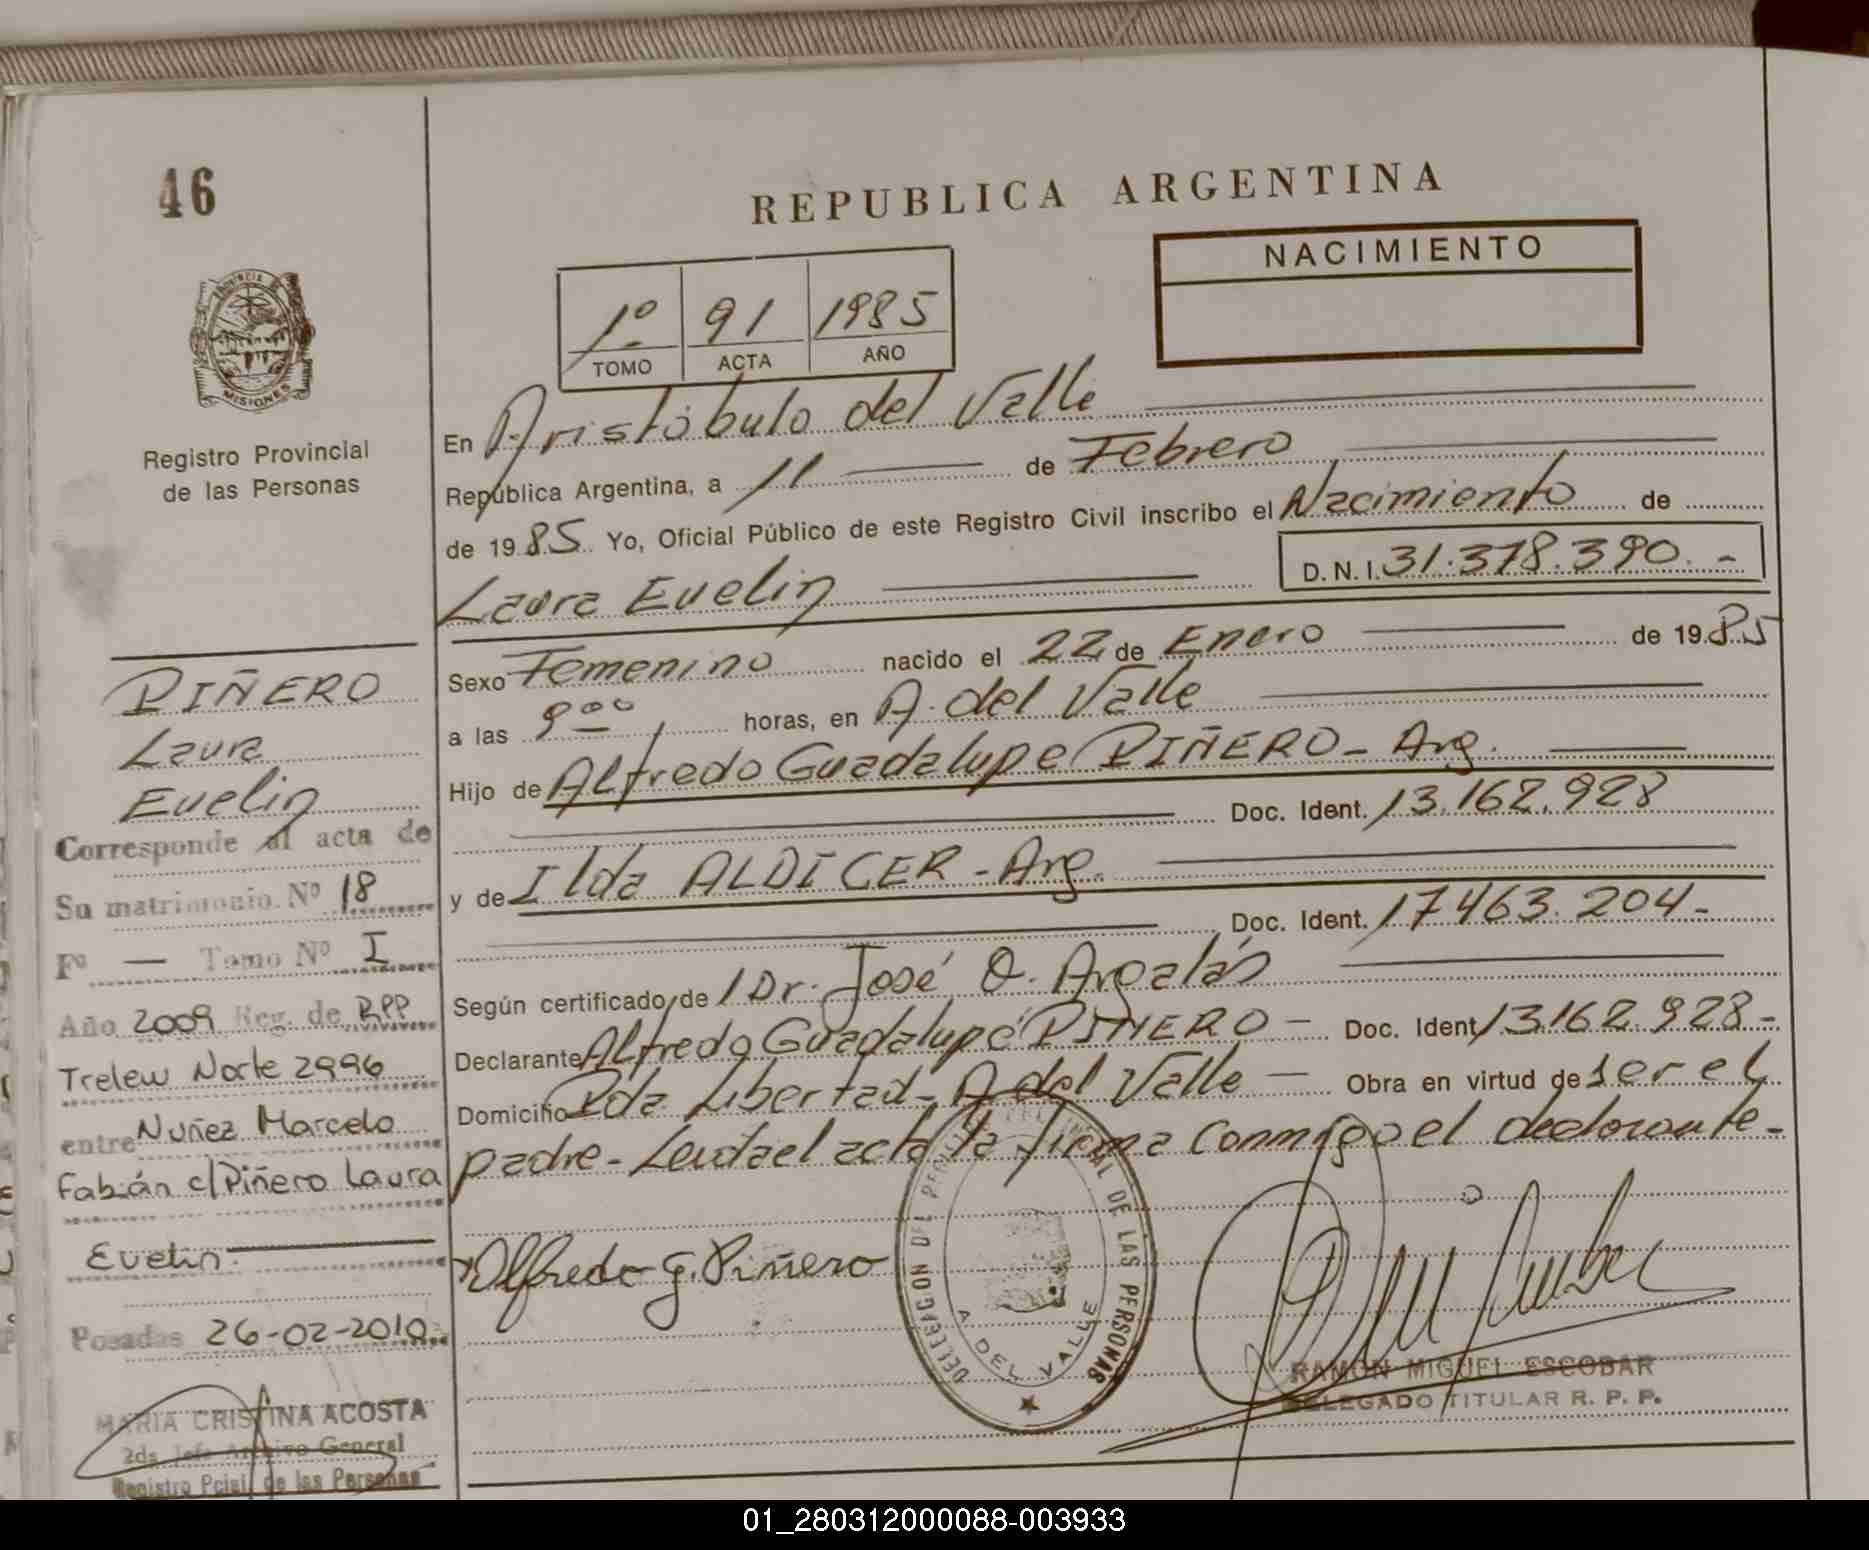 46
REPUBLICA ARGENTINA
NACIMIENTO
1º 91 1985
TOMO ACTA AÑO
MISIONES
Registro Provincial
de las Personas
En Aristóbulo del Valle
República Argentina, a 11 de Febrero
de 1985 Yo, Oficial Público de este Registro Civil inscribo el Nacimiento de
Laura Evelin D. N. I. 31.378.390.-
Sexo Femenino nacido el 22 de Enero de 1985
a las 9ºº horas, en A. del Valle
Hijo de Alfredo Guadalupe PIÑERO - Arg.
Doc. Ident. 13.162.928
y de Ilda ALDICER - Arg.
Doc. Ident. 17463.204-
Según certificado de 1 Dr. José O. Argalás
Declarante Alfredo Guadalupe PIÑERO - Doc. Ident. 13162.928-
Domicilio Pda. Libertad - A del Valle - Obra en virtud de ser el
padre - Leída el acta la firma conmigo el declarante -
Alfredo G. Piñero
DELEGACION DEL REGISTRO PROVINCIAL DE LAS PERSONAS
A DEL VALLE
RAMON MIGUEL ESCOBAR
DELEGADO TITULAR R. P. P.
PIÑERO
Laura
Evelin
Corresponde al acta de
Su matrimonio Nº 18
Fº — Tomo Nº I
Año 2009 Reg. de RPP
Trelew Norte 2996
entre Nuñez Marcelo
Fabián c/ Piñero Laura
Evelin.
Posadas 26-02-2010
MARIA CRISTINA ACOSTA
2da Jefe Archivo General
Registro Pcial. de las Personas
01_280312000088-003933